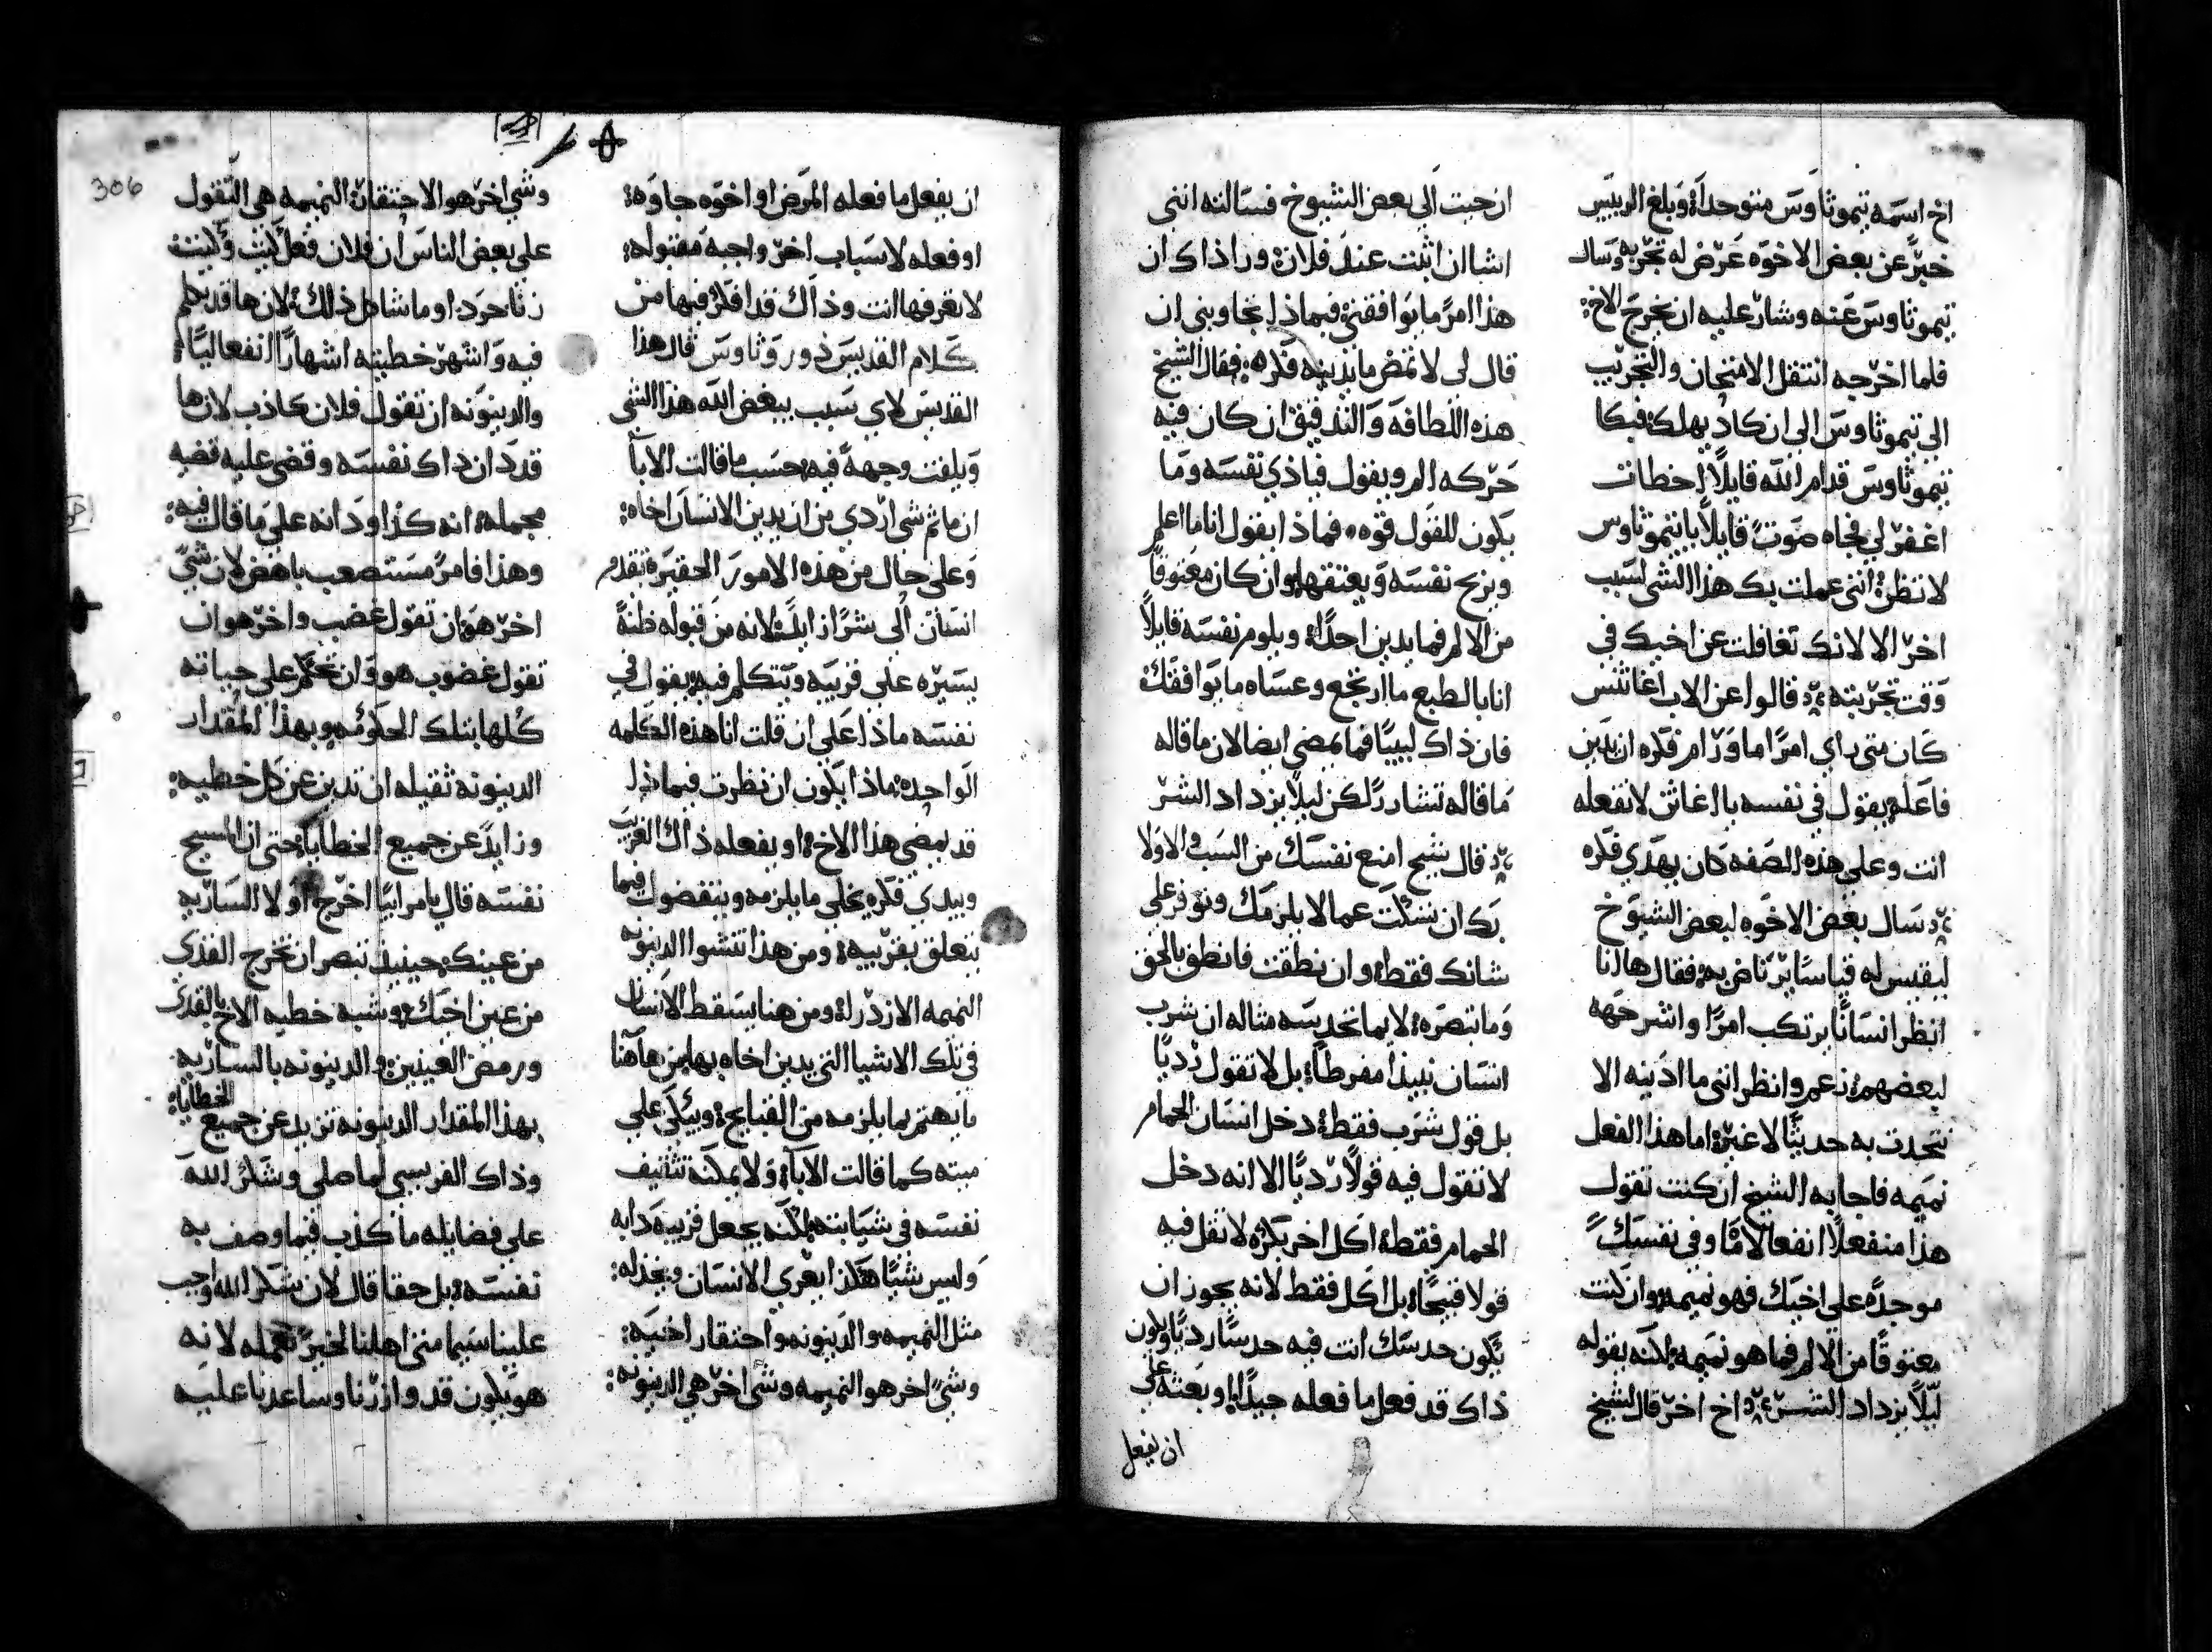 اخ اسمه تيموثاوس متوحداً، وبلغ الرييس
خبرً عن بعض الاخوه عرض له تجربه وسال
تيموثاوس عنه وشار عليه ان يخرج الاخ:
فلما اخرجه انتقل الامتحان والتجريب
الى تيموثاوس الى ان كاد يهلك: فبكا
تيموثاوس قدام الله قايلاً اخطات
اغفر لي فجاه صوتً قايلاً ياتيموثاوس
لا تظن انني عملت بك هذا الشي لسبب
اخر الا لانك تغافلت عن اخيك في
وقت تجربته قالوا عن الاب اغاثنس
كان متى راي امرًا ما ورام فكره ان يدين
فاعله يقول في نفسه يا اغاثن لا تفعله
انت وعلى هذه الصفه كان يهدي فكره
سال بعض الاخوه لبعض الشيوخ
ليقيس له قياسًا يرتاض به، فقال ها انا
انظر انسانًا يرتكب امرًا واشرحه
لبعضهم، نعم وانظر انني ما ادينه الا
نتحدث به حديثًا لا غير، اما هذا الفعل
نميمه فاجابه الشيخ ان كنت تقول
هذا منفعلاً انفعالا ما وفي نفسك
موجدً على اخيك فهو نميمه، وان كنت
معتوقًا من الالم فما هو نميمه، لكنه بقوله
ليلاً يزداد الشر اخ اخر قال لشيخ
ان جيت الى بعض الشيوخ فسالته انني
اشا ان اثبت عند فلان، ورا ذاك ان
هذا امرً ما يوافقني فيماذا يجاوبني ان
قال لي لا تمض ما يدينه فكره: فقال الشيخ
هذه اللطافه والتدقيق ان كان فيه
حركه الم ويقول فياذي نفسه وما
يكون للقول قوه، فماذا يقول انا ما اعلم
ويريح نفسه ويعتقها، وان كان معتوقًا
من الالم فما يدين احدًا، ويلوم نفسه قايلاً
انا بالطبع ما ارتجع وعساه ما يوافقك
فان ذاك لبيبًا فما يمضي ايضا لان ما قاله
ما قاله تشاررً لكن ليلاً يزداد الشر
قال شيخ امنع نفسك من السب والاولا
بك ان تسكت عما لا يلزمك وتوفر على
شانك فقط، وان نطقت فانطق بالحق
وما تبصره، لا بما تحدسه مثاله ان شرب
انسان نبيذا مفرطا، بل لا تقول رديًا
بل قول شرب فقط، دخل انسان الحمام
لا تقول فيه قولاً رديًا الا انه دخل
الحمام فقط، اكل اخر بكره لا تقل فيه
قولا قبيحًا، بل اكل فقط لانه يجوز ان
يكون حدسك انت فيه حدسًا رديًا ويكون
ذاك قد فعل ما فعله جيدًا، او بعثه على
ان يفعل
306
ان يفعل ما فعله المرض او اخوه جاوه:
او فعله لاسباب اخر واجبة مقبوله:
لا تعرفها انت وذاك قد افكر فيها من
كلام القديس دوروثاوس قال هذا
القديس لاي سبب يبغض الله هذا الشي
ويلفت وجههً فيه، حسب ما قالت الابا
ان ما ثم شي اردي من ان يدين الانسان اخاه:
وعلى حال من هذه الامور الحقيره تقدم
انسان الى شرً ازايد لانه من قبوله ظنةً
يسيره على قريبه ويتكلم فيه يقول في
نفسه ماذا على ان قلت انا هذه الكلمه
الواحده، ماذا يكون ان نظرت فيماذا
قد يمضي هذا الاخ، او يفعله ذاك الغريب
ويبدي فكره يخلي ما يلزمه ويتفضول فيما
يتعلق بقريبه، ومن هذا تنشوا الدينونه
النميمه الازدراء، ومن هنا يسقط الانسان
في تلك الاشيا التي يدين اخاه بها، من هاهنا
ما يهتم بما يلزمه من القبايح، ويبكي على
ميته كما قالت الابا، ولا يمكنه تثقيف
نفسه في شي البته، لكنه يجعل قريبه دابه
وليس شيًا هكذا يغري الانسان ويخذله:
مثل النميمه والدينونه واحتقار اخيه:
وشيً اخر هو النميمه وشي اخر هي الدينونه:
وشي اخر هو الاحتقار، النميمه هي التقول
على بعض الناس ان فلان فعل كيت وكيت
زنا حرد، او ما شاكل ذلك، لان ها قد تكلم
فيه واشهر خطيته اشهارًا انفعاليًا:
والدينونه ان تقول فلان كاذب لان ها
قد دان ذاك نفسه وقضى عليه قضيه
مجمله، انه كذا ودانه على ما قال فيه:
وهذا فامرً مستصعب باهض لان شيً
اخر هو ان تقول غضب واخر هو ان
تقول غضوب هو وان تحكم على حياته
كلها بتلك الحكومه وبهذا المقدار
الدينونه ثقيله ان تدين عن كل خطيه:
وزايدً عن جميع الخطايا، حتى ان المسيح
نفسه قال يا مراييًا اخرج اولا الساريه
من عينك، حينيذ تبصر ان تخرج القذى
من عين اخيك، وشبه خطيه الاخ بالقذى
ورمض العينين، والدينونه بالساريه
بهذا المقدار الدينونه تزيد عن جميع الخطايا:
وذاك الفريسي لما صلى وشكر الله
على فضايله ما كذب فيما وصف به
نفسه، بل حقا قال لان شكر الله واجب
علينا سيما متى اهلنا لخيرً نعمله لانه
هو يكون قد وازرنا وساعدنا عليه